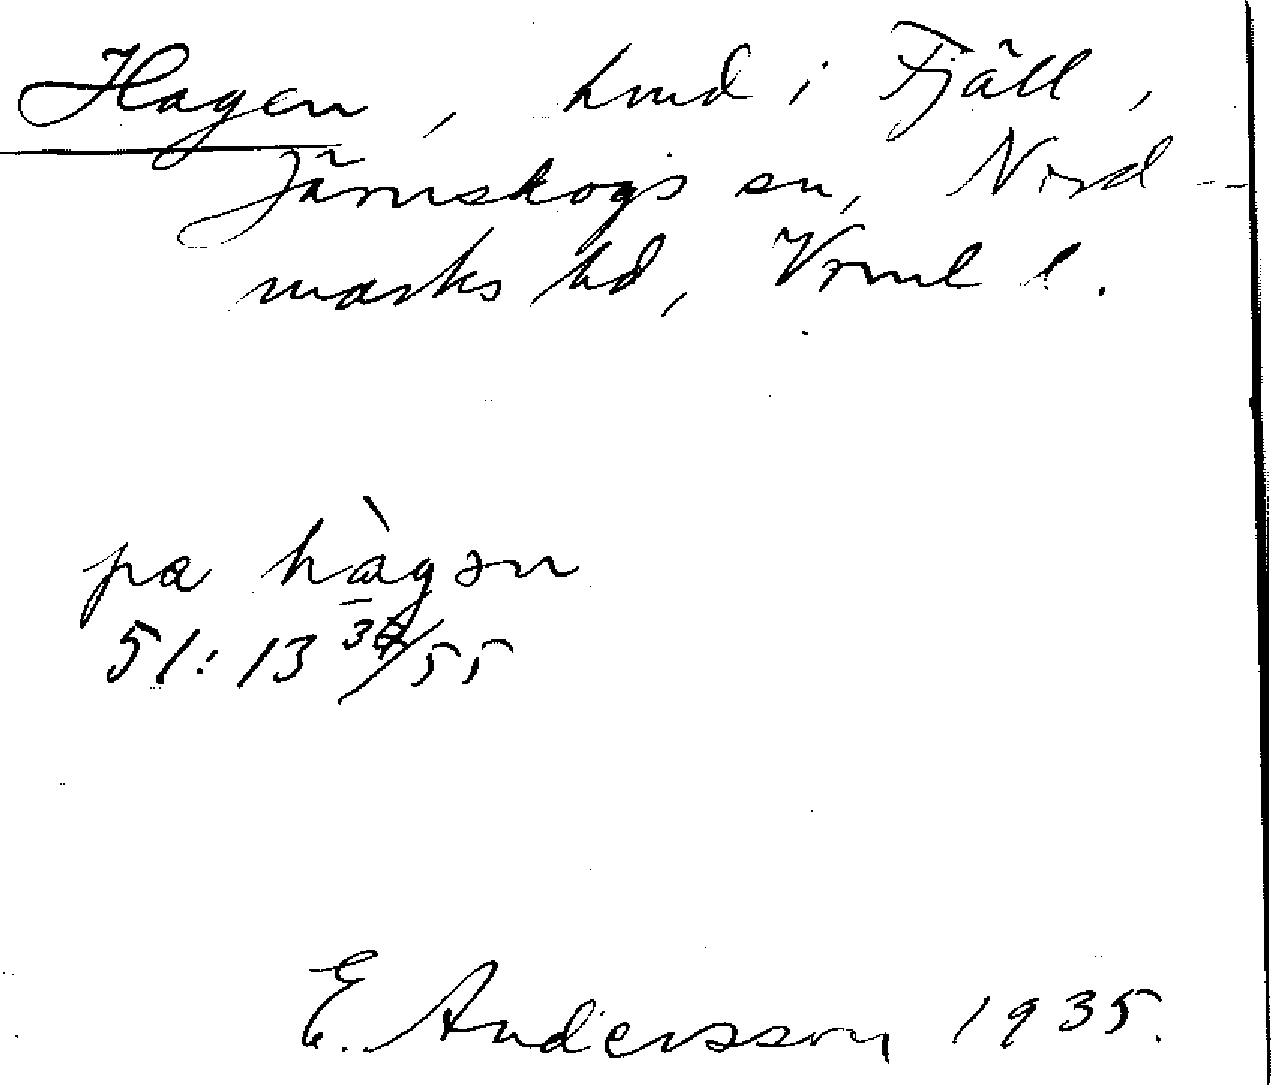 Hagen, lmd i Fjäll,
Järnskogs sn, Nord-
marks hd, Vrml l.
pa hàgən
51:13 /55
E. Andersson 1935.